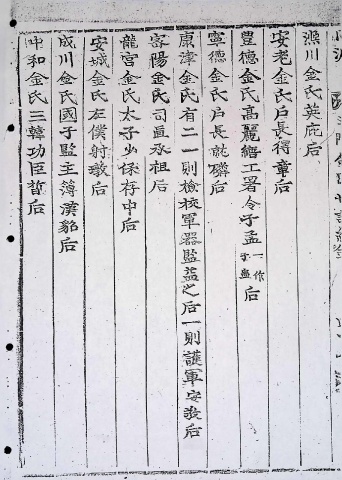 漁川金氏英庇后
安老金氏戶長得章后
豊德金氏高麗繕工署令于孟一作于盂后
寧德金氏戶長就磷后
康津金氏有二一則檢校軍器監益之后一則護軍安敬后
密陽金氏司直承祖后
龍宮金氏太子少保存中后
安城金氏左僕射敬后
成川金氏國子監主簿漢貂后
中和金氏三韓功臣哲后